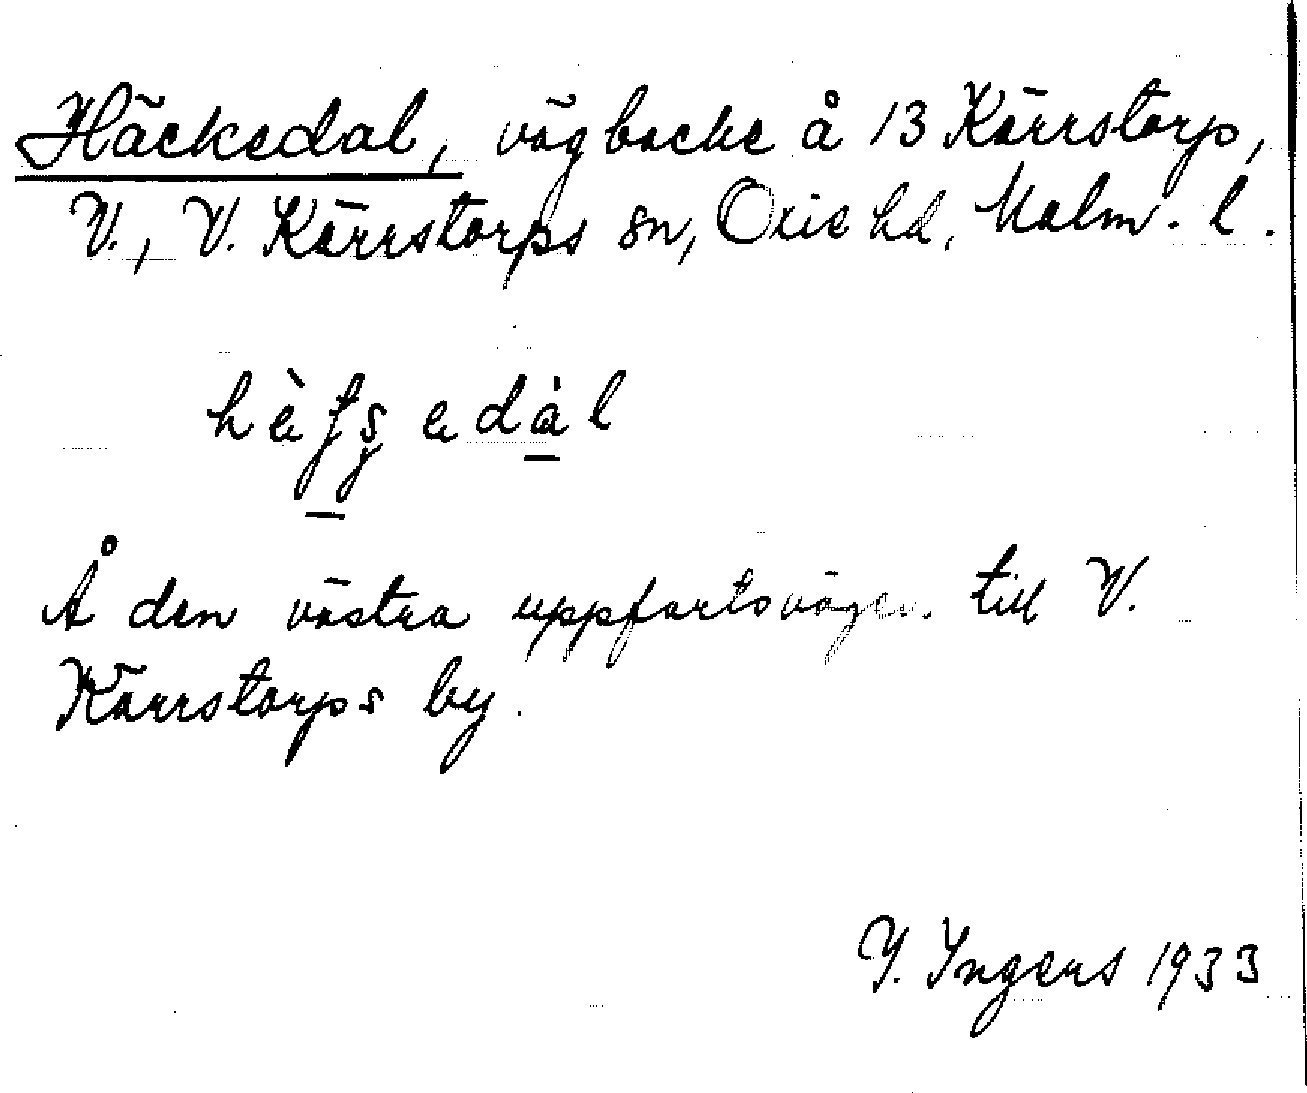 Häckedal, vägbacke å 13 Kärrstorp,
V., V. Kärrstorps sn, Oxie hd, Malm. l.
Å den västra uppfartsvägen till V.
Kärrstorps by.
I. Ingers 1933